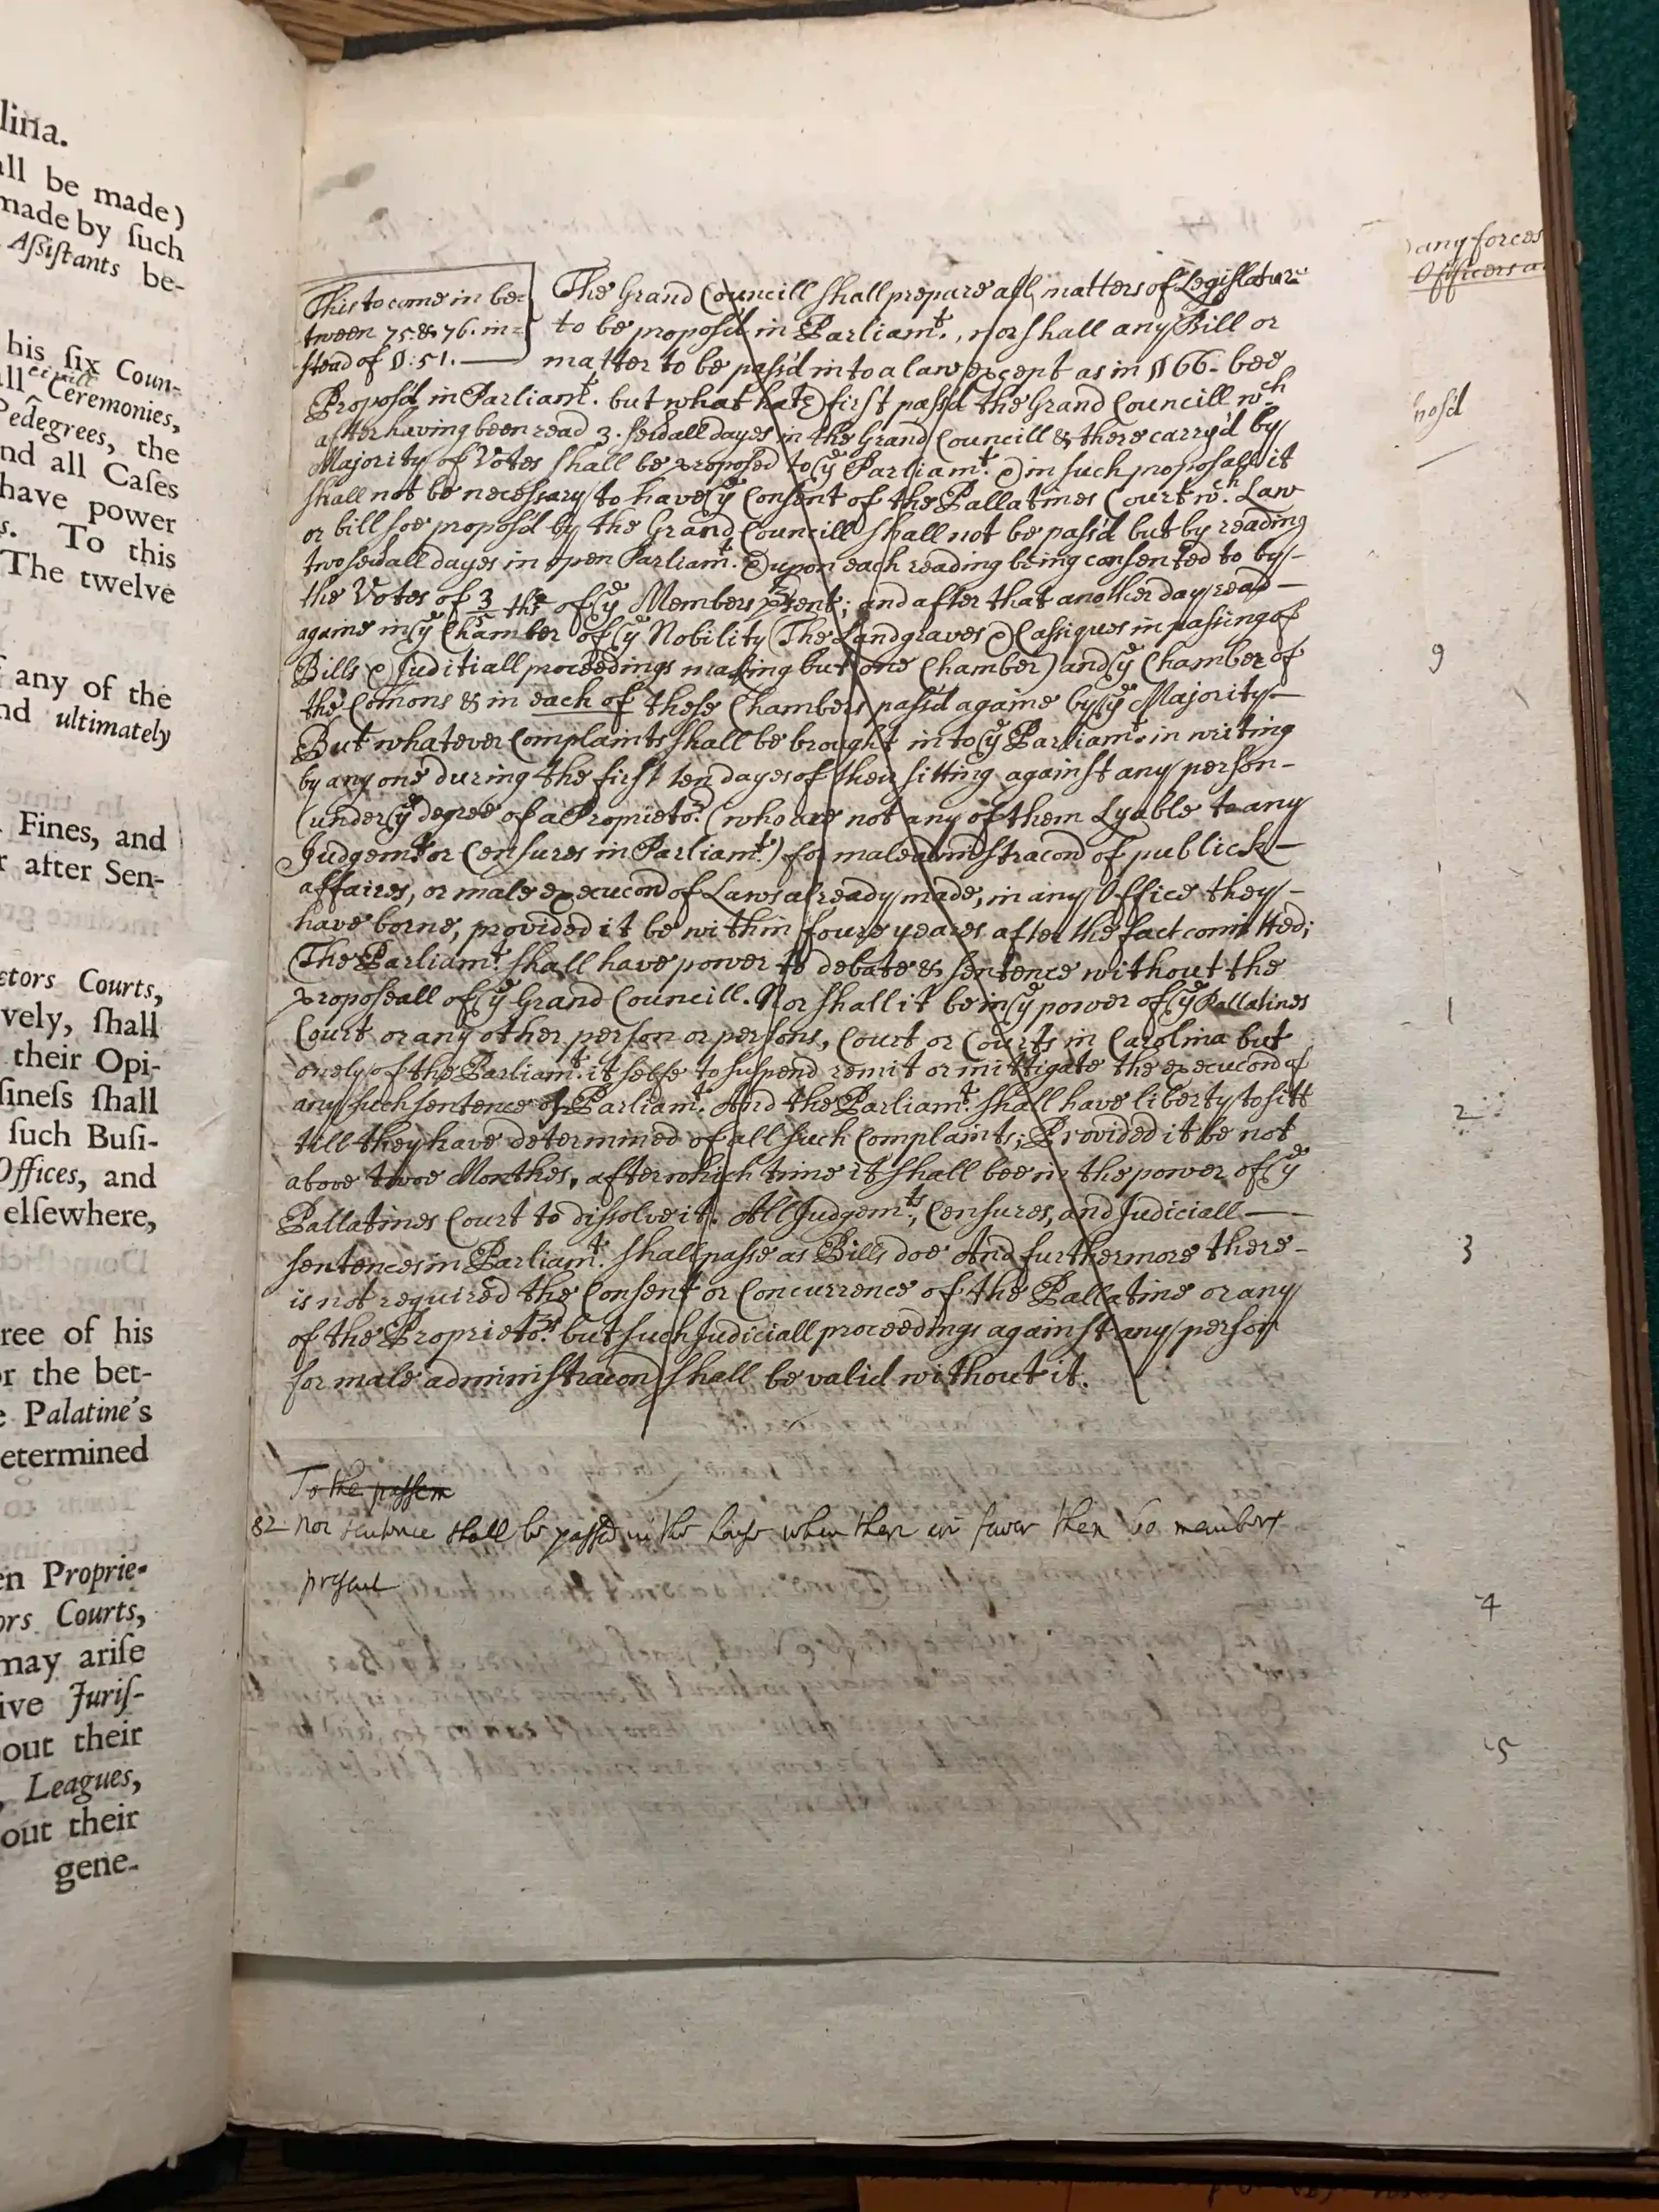 lina.
all be made)
made by ſuch
Aſſiſtants be-
his ſix Coun-
all Ceremonies,
Pedegrees, the
nd all Caſes
have power
s. To this
The twelve
any of the
nd ultimately
Fines, and
r after Sen-
ctors Courts,
vely, ſhall
their Opi-
ſineſs ſhall
ſuch Buſi-
Offices, and
elſewhere,
ree of his
or the bet-
e Palatine's
etermined
en Proprie-
ors Courts,
may ariſe
ive Juriſ-
out their
Leagues,
out their
gene-
This to come in be=
tween 75. & 76. in=
stead of §: 51.
The Grand Councill shall prepare all matters of Legislature
to be propos'd in Parliamt., nor shall any Bill or
matter to be pass'd into a law except as in § 66. bee
Propos'd in Parliamt. but what hath first pass'd the Grand Councill wch
after having been read 3. sevall dayes in the Grand Councill & there carry'd by
Majority of Votes shall be proposed to ye Parliamt. & in such proposall it
shall not be necessary to have ye Consent of the Pallatines Court wch. Law
or bill soe propos'd by the Grand Councill shall not be pass'd but by reading
two sevall dayes in open Parliamt. & upon each reading being consented to by
the Votes of 3/5 ths of ye Members psent; and after that another day read
againe in ye Chamber of ye Nobility (The Landgraves & Cassiques in passing of
Bills & Juditiall proceedings making but one Chamber) and ye Chamber of
the Comons & in each of these Chambers pass'd againe by ye Majority
But whatever Complaints shall be brought into ye Parliamt. in writing
by any one during the first ten dayes of their sitting against any person
(under ye degree of a Proprietor. (who are not any of them Lyable to any
Judgemts or Censures in Parliamt.) for maleadministracon of publick
affaires, or male execucon of Laws already made, in any Office they
have borne, provided it be within foure yeares after the fact comitted;
The Parliamt. shall have power to debate & sentence without the
proposeall of ye Grand Councill. Nor shall it be in ye power of ye Pallatines
Court or any other person or persons, Court or Courts in Carolina but
onely of the Parliamt. it selfe to suspend remit or mittigate the execucon of
any such sentence of Parliamt. And the Parliamt. shall have liberty to sitt
till they have determined of all such Complaints; Provided it be not
above twoe Monthes, after which time it shall bee in the power of ye
Pallatines Court to dissolve it. All Judgemts., Censures, and Judiciall
sentences in Parliamt. shall passe as Bills doe And furthermore there
is not required the Consent or Concurrence of the Pallatine or any
of the Proprietors. but such Judiciall proceedings against any person
for male administracon shall be valid without it.
To the passem
82 Nor sentence shall be passed in the house when ther are fewer then 60 members
present
any forces
Officers a
nos'd
9
1
2
3
4
5